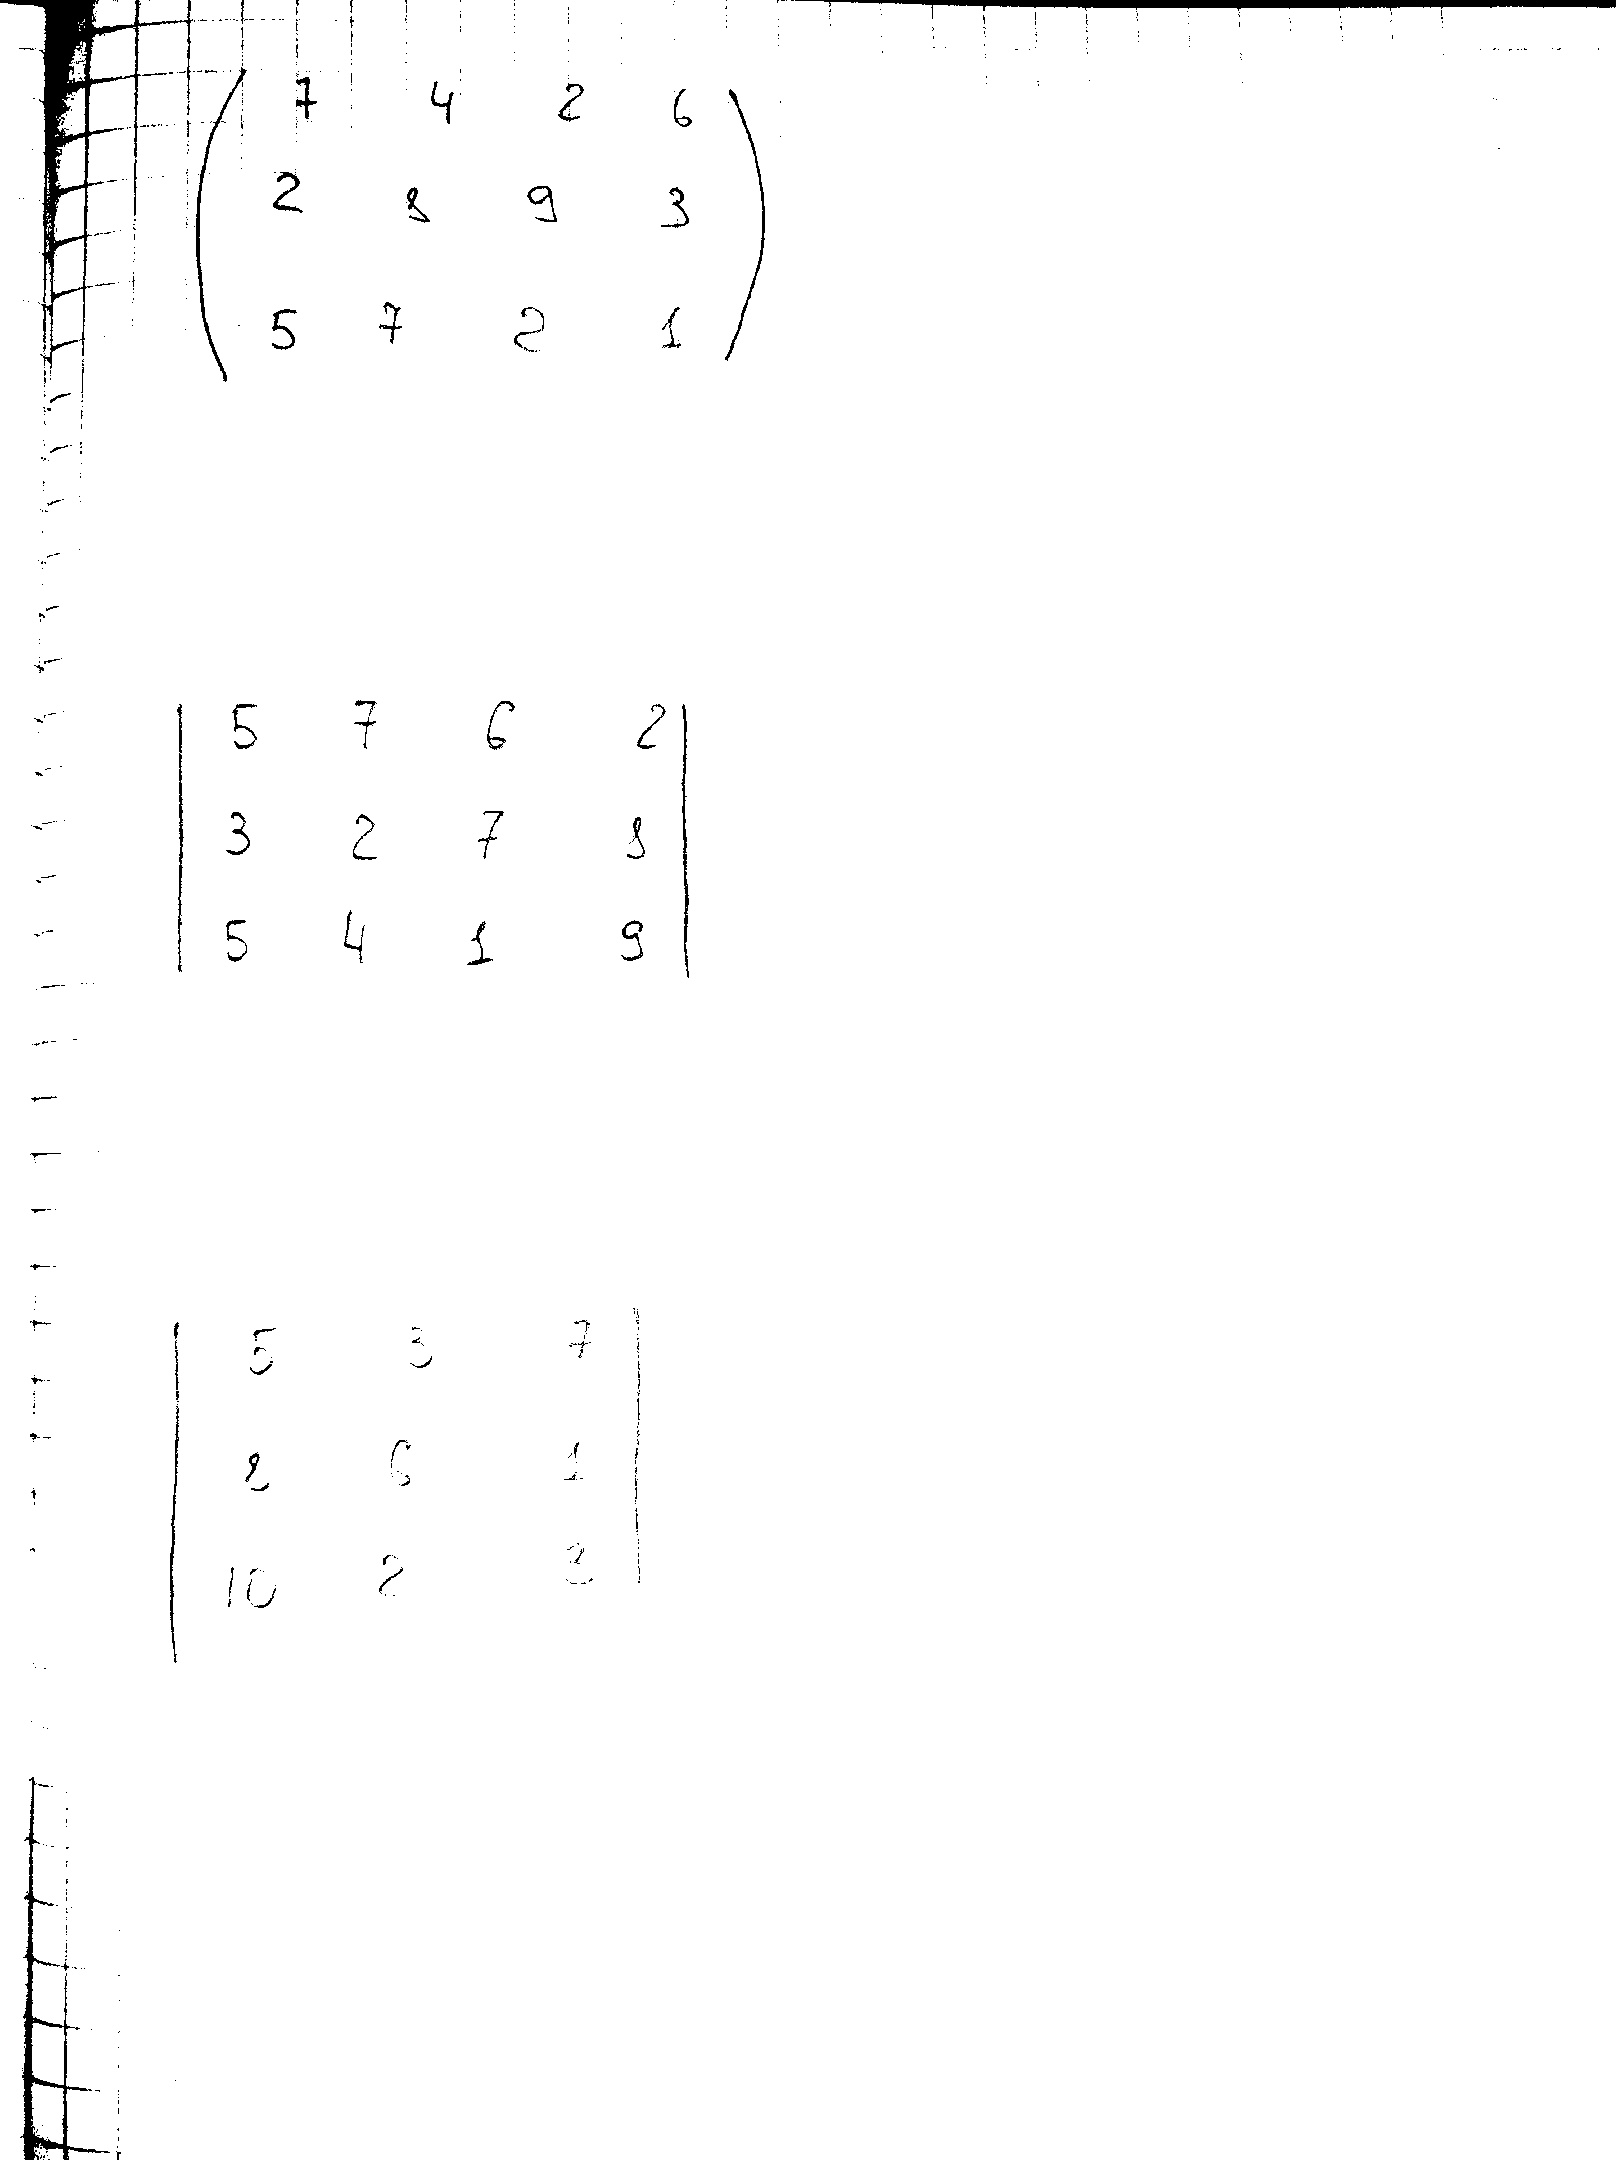 7 4 2 6
2 8 9 3
5 7 2 1
5 7 6 2
3 2 7 8
5 4 1 9
5 3 7
2 6 1
10 2